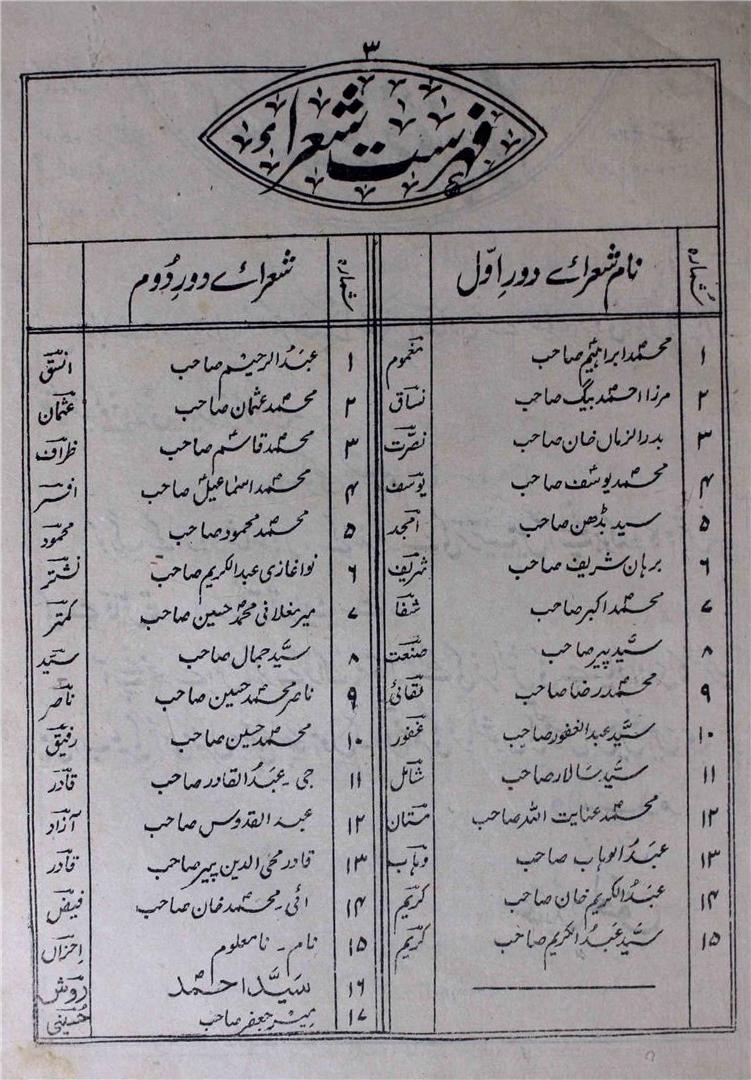 ۳
فہرست شعراء
شمارہ نام شعرائے دورِ اوّل شمارہ شعرائے دورِ دُوم
۱ محمد ابراہیم صاحب مغموم ۱ عبدُ الرحیم صاحب انسق
۲ مرزا احمد بیگ صاحب نساق ۲ محمد عثمان صاحب عثمان
۳ بدر الزماں خان صاحب نصرت ۳ محمد قاسم صاحب ظراف
۴ محمد یوسف صاحب یوسف ۴ محمد اسماعیل صاحب افسر
۵ سید بڈھن صاحب امجد ۵ محمد محمود صاحب محمود
۶ برہان شریف صاحب شریف ۶ نوا غازی عبد الکریم صاحب نشتر
۷ محمد اکبر صاحب شفا ۷ میر مغلانی محمد حسین صاحب کمتر
۸ سیّد پیر صاحب صنعت ۸ سیّد جمال صاحب سیّد
۹ محمد رضا صاحب ۹ ناصر محمد حسین صاحب ناصر
۱۰ سیّد عبد الغفور صاحب غفور ۱۰ محمد حسین صاحب رفیق
۱۱ سیّد سالار صاحب شامل ۱۱ جی۔ عبدُ القادر صاحب قادر
۱۲ محمد عنایت اللہ صاحب مستان ۱۲ عبد القدوس صاحب آزاد
۱۳ عبدُ الوہاب صاحب وہاب ۱۳ قادر محی الدین پیر صاحب قادر
۱۴ عبدُ الکریم خان صاحب کریم ۱۴ ائی۔ محمد خان صاحب فیض
۱۵ سیّد عبدُ الکریم صاحب کریم ۱۵ نام۔ نامعلوم احزاں
۱۶ سَیَّد احمد روش
۱۷ میر جعفر صاحب حُسینی